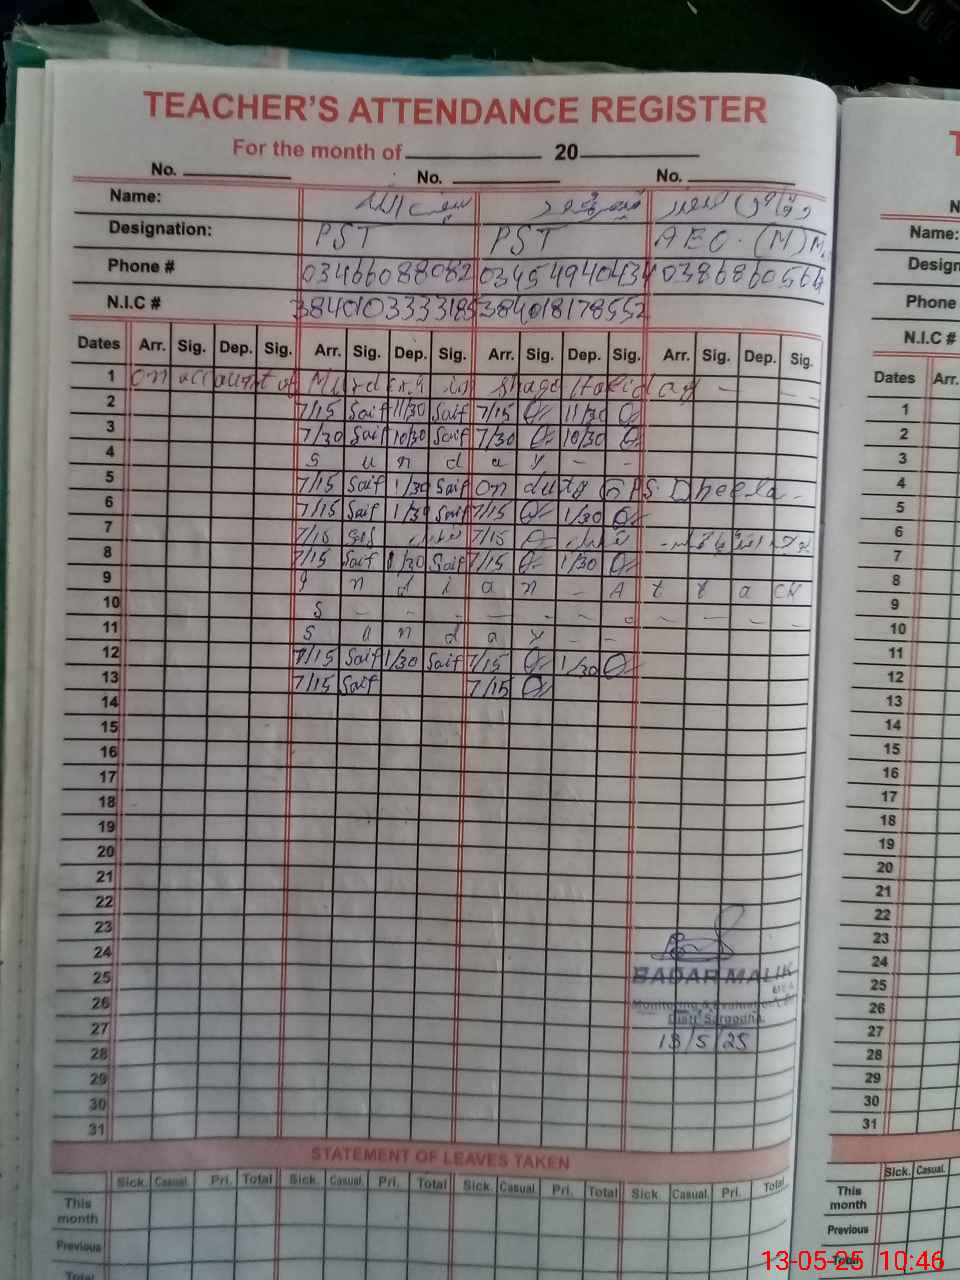 TEACHER'S ATTENDANCE REGISTER
For the month of 20
No. No. No.
Name:
Designation: PST PST AEO. (M)
Phone # 03466088082 03454940434
N.I.C # 384018178552
Dates Arr. Sig. Dep. Sig. Arr. Sig. Dep. Sig. Arr. Sig. Dep. Sig. Arr. Sig. Dep. Sig.
1 On account of Holiday -
2 7/15 Saif 11/30 Saif 7/15 11/30
3 7/30 Saif 10/30 Saif 7/30 10/30
4 S u n d a y - -
5 7/15 Saif 1/30 Saif On duty GPS Dheela -
6 7/15 Saif 1/30 Saif 7/15 1/30
7 7/15 7/15
8 7/15 Saif 1/30 Saif 7/15 1/30
9 I n d i a n - A t t a ck
10 S - - - - - - - - - -
11 S u n d a y - -
12 7/15 Saif 1/30 Saif 7/15 1/30
13 7/15 Saif 7/15
14
15
16
17
18
19
20
21
22
23
24
25
26
27
28
29
30
31
BADAR MALIK
MEA
Monitoring & Evaluation
Distt Sargodha.
13/5/25
STATEMENT OF LEAVES TAKEN
Sick. Casual. Pri. Total Sick. Casual. Pri. Total Sick. Casual. Pri. Total Sick. Casual. Pri. Total
This month
Previous
Total
T
N
Name:
Design
Phone
N.I.C #
Dates Arr.
1
2
3
4
5
6
7
8
9
10
11
12
13
14
15
16
17
18
19
20
21
22
23
24
25
26
27
28
29
30
31
Sick. Casual.
This month
Previous
Total
13-05-25 10:46